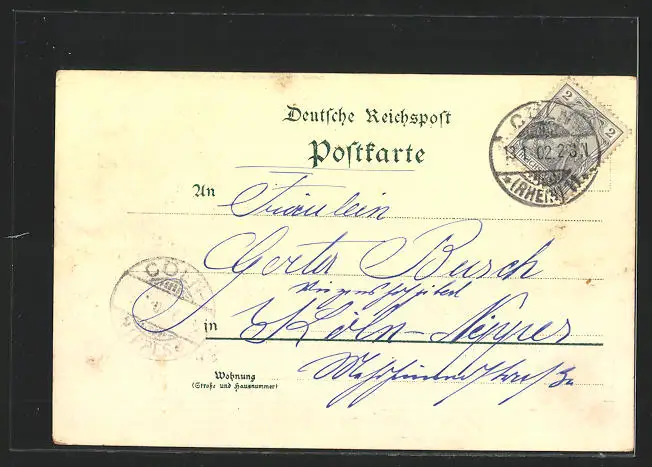 Deutsche Reichspost
Postkarte
2 2
CÖLN
13.1.02.2-3.N
*(RHEIN)1*
An Fräulein
Gerta Busch
CÖLN
in Köln-Nippes
Wohnung
(Straße und Hausnummer)